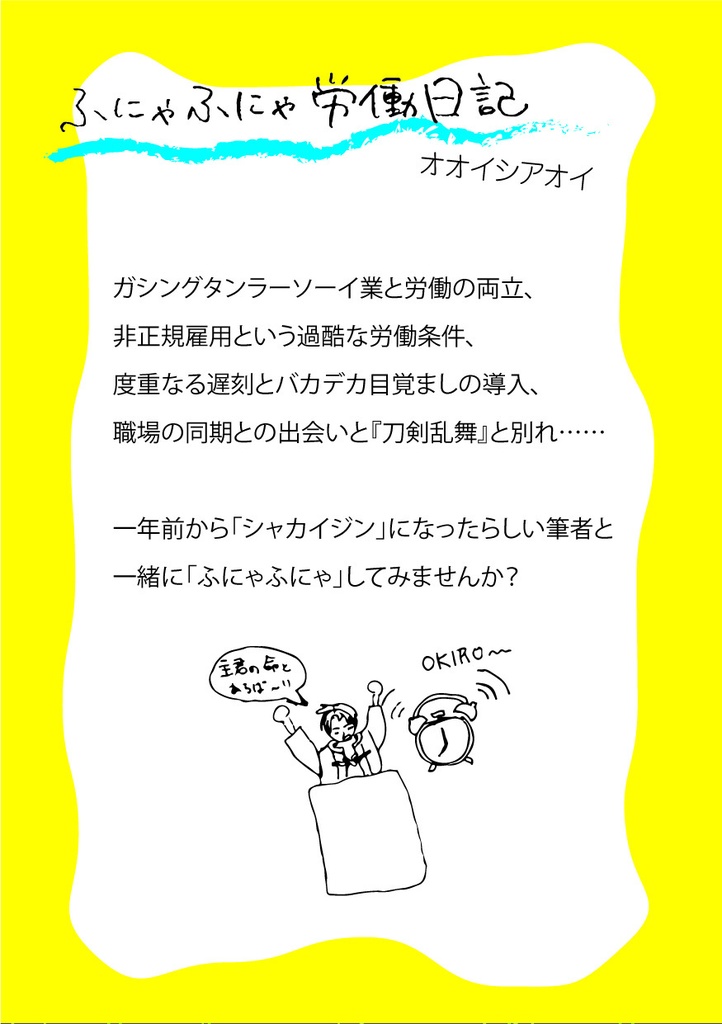 ふにゃふにゃ労働日記
オオイシアオイ
ガシングタンラーソーイ業と労働の両立、
非正規雇用という過酷な労働条件、
度重なる遅刻とバカデカ目覚ましの導入、
職場の同期との出会いと『刀剣乱舞』と別れ……
一年前から「シャカイジン」になったらしい筆者と
一緒に「ふにゃふにゃ」してみませんか？
OKIRO〜
主君の命と
あらば〜!!